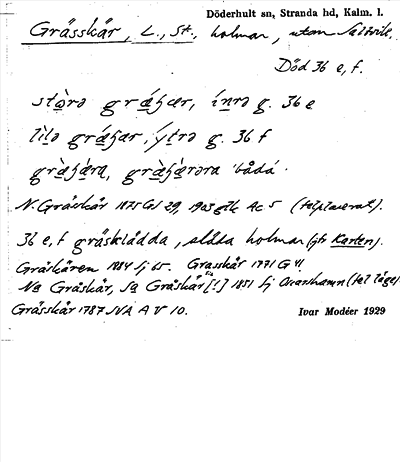 Döderhult sn, Stranda hd, Kalm. l.
Grässkär, L., St., holmar, utom Saltvik.
Död 36 e, f.
stọ̀rə grǽʃær, ínrə g. 36 e
lìlə grǽʃær, ýtrə g. 36 f
græ̀ʃæ̀ra, græ̀ʃæ̀rəra 'båda'
N. Gräskär 1875 Gl 29, 1903 Ac 5 (felplacerat).
36 e, f gräsklädda, släta holmar (jfr Karten).
Gräskären 1784 Sj 65. Grasskär 1771 G 41.
Na Gräskär, Sa Gräskär [!] 1851 Sj Oscarshamn (fel läge)
Grässkär 1787 NA A V 10.
Ivar Modéer 1929